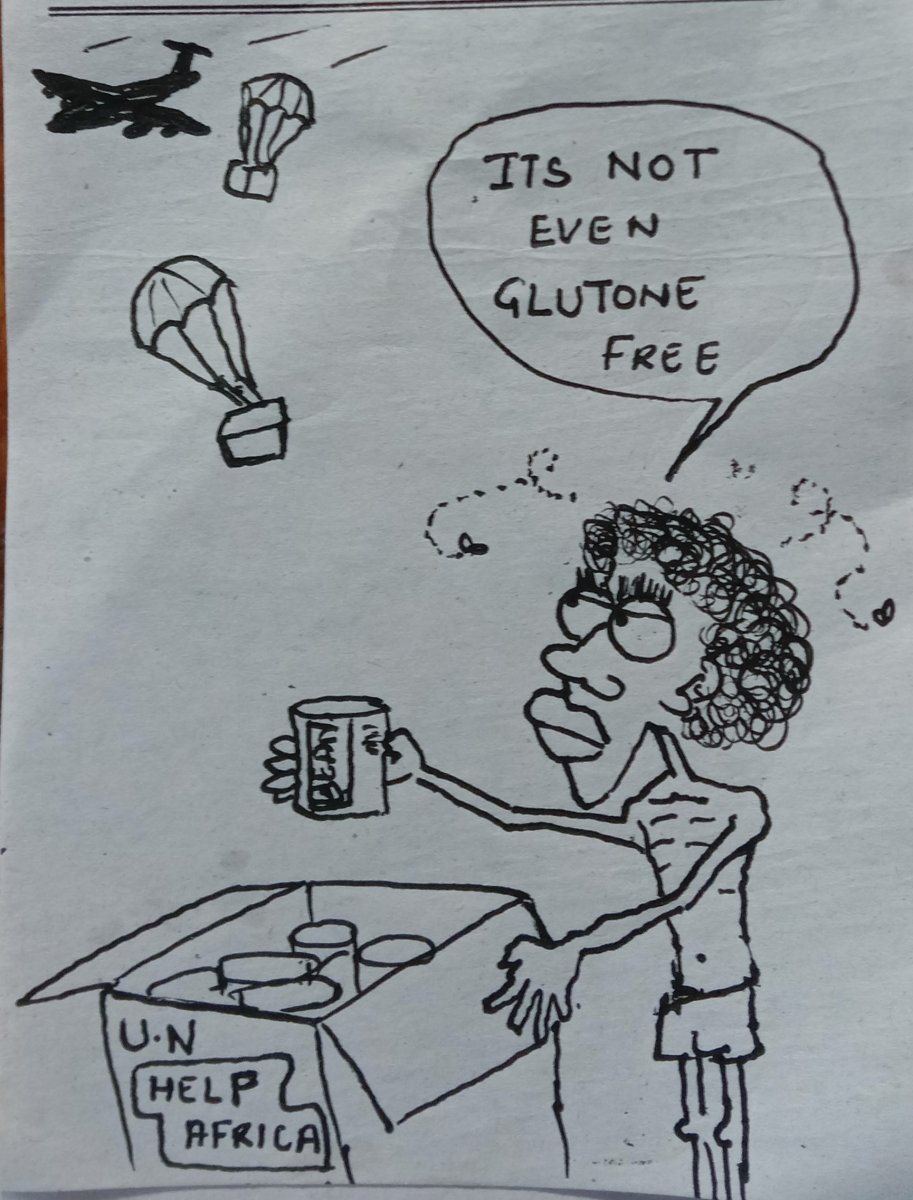 ITS NOT
EVEN
GLUTONE
FREE
BEANS
U.N
HELP
AFRICA